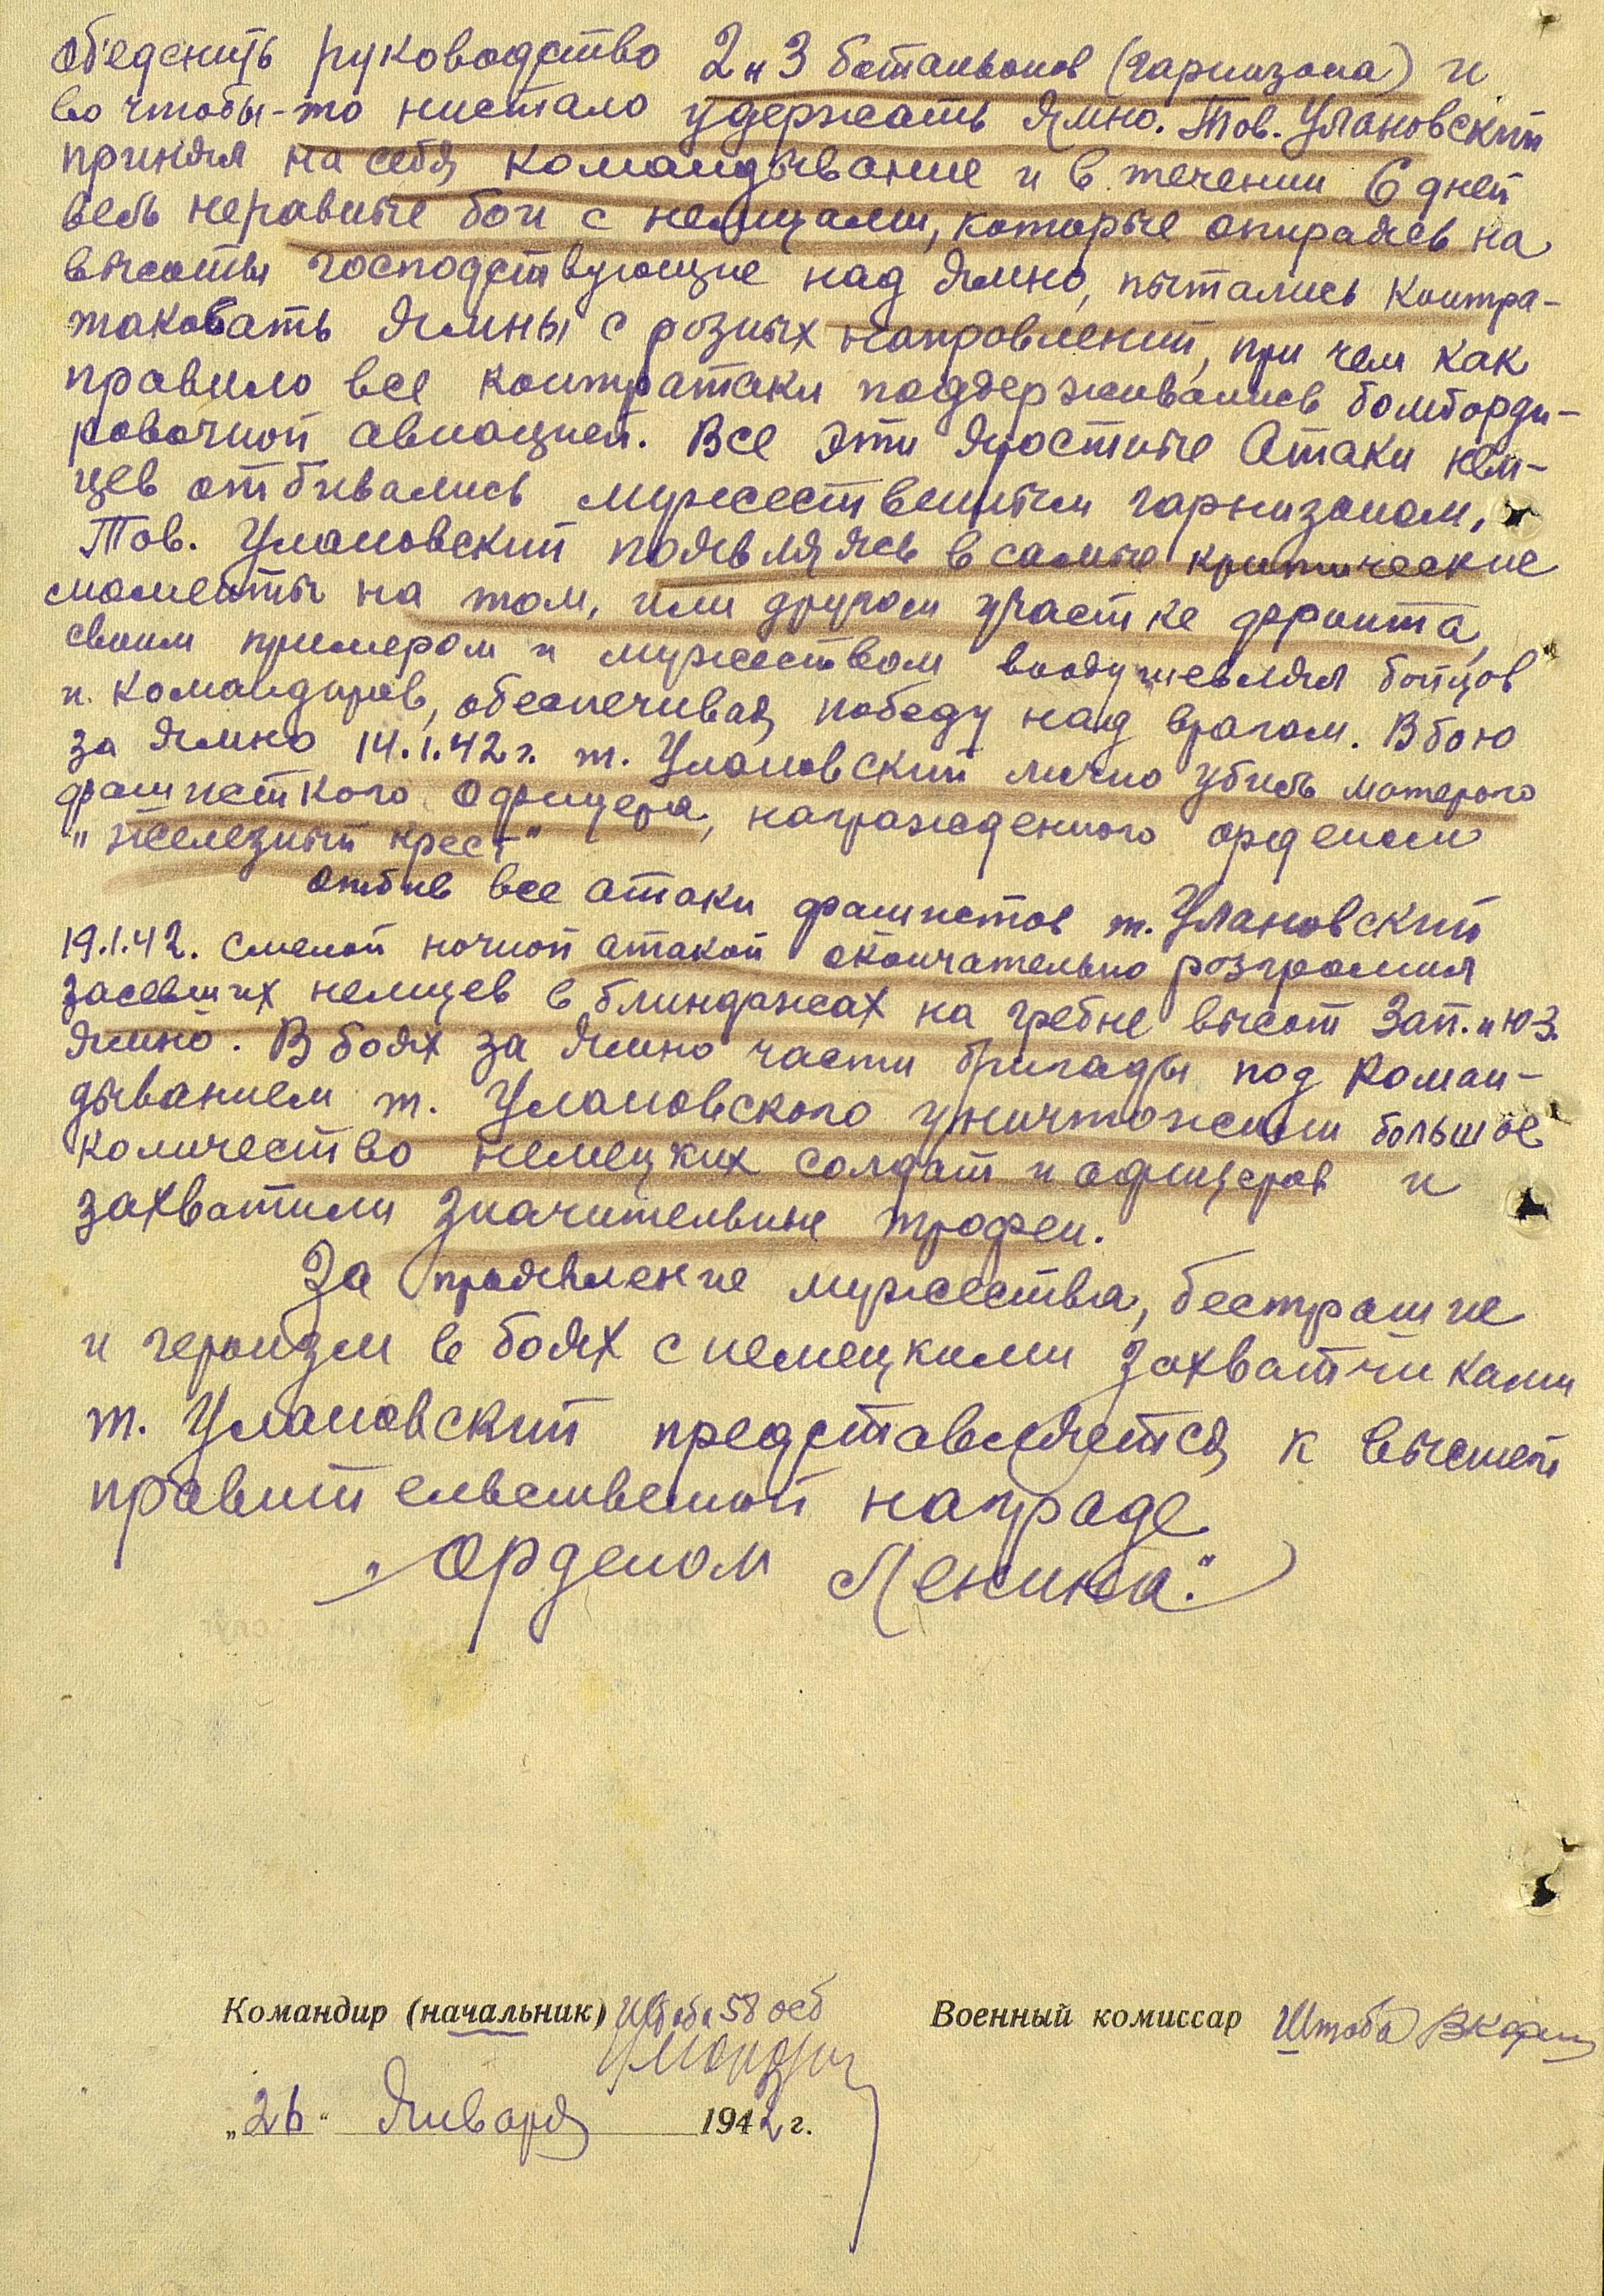 об'еденить руководство 2 и 3 батальонов (гарнизона) и
во чтобы-то нистало удержать Ямно. Тов. Улановский
принял на себя командывание и в течении 6 дней
вель неравные бои с немцами, которые опираясь на
высоты господствующие над Ямно, пытались контра-
таковать Ямны с розных направлений, при чем как
правило все контратаки поддерживались бомбарди-
ровочной авиацией. Все эти яростные атаки нем-
цев отбивались мужественным гарнизоном,
Тов. Улановский появляясь в самые критические
моменты на том, или другом участке фронта,
своим примером и мужеством воодушевлял бойцов
и командиров, обеспечивая победу над врагом. В бою
за Ямно 14.1.42 г. т. Улановский лично убиль матерого
фашисткого офицера, награжденного орденом
"Железный крест"
Отбив все атаки фашистов т. Улановский
19.1.42. смелой ночной атакой окончательно розгромил
засевших немцев в блиндажах на гребне высот Зап. и ЮЗ.
Ямно. В боях за Ямно части бригады под коман-
дыванием т. Улановского уничтожили большое
количество немецких солдат и офицеров и
захватили значительные трофеи.
За проявление мужества, бестрашие
и героизм в боях с немецкими захватчиками
т. Улановский представляется к высшей
правительственной награде
"Орденом Ленина".
Командир (начальник) Штаба 58 осб Военный комиссар Штаба
„26" Января 1942 г.